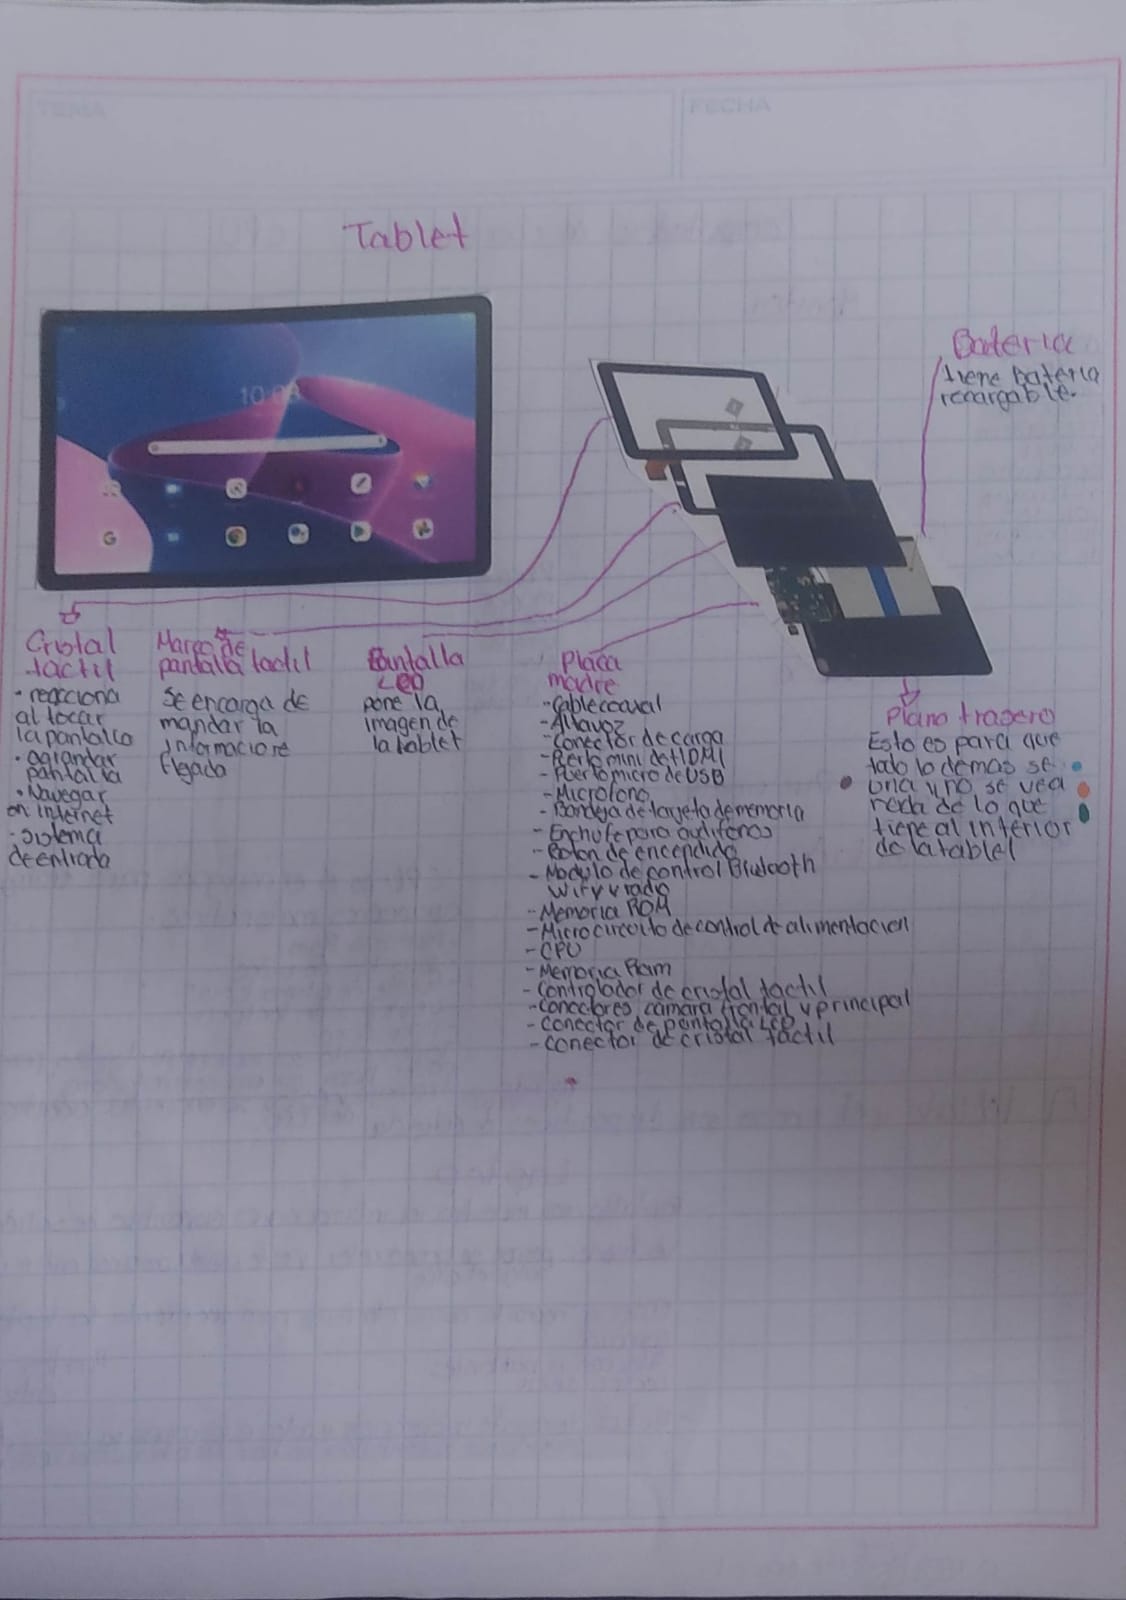 TEMA
FECHA
Tablet
10:08
Bateria
tiene bateria
recargable.
Cristal
tactil
• reacciona
al tocar
la pantalla
• agrandar
pantalla
• Navegar
en internet
- sistema
de entrada
Marco de
pantalla tactil
se encarga de
mandar la
informacion
Pantalla
LED
pone la
imagen de
la tablet
Placa
madre
- Cable coaxial
- Altavoz
- Conector de carga
- Puerto mini de HDMI
- Puerto micro de USB
- Microfono
- Bandeja de tarjeta de memoria
- Enchufe para audifonos
- Boton de encendido
- Modulo de control Blutooth
wify y radio
- Memoria ROM
- Microcircuito de control de alimentacion
- CPU
- Memoria Ram
- Controlador de cristal tactil
- Conectores camara frontal y principal
- conector de pantalla LED
- conector de cristal tactil
Plano trasero
Esto es para que
todo lo demas se
una y no se vea
nada de lo que
tiene al interior
de la tablet